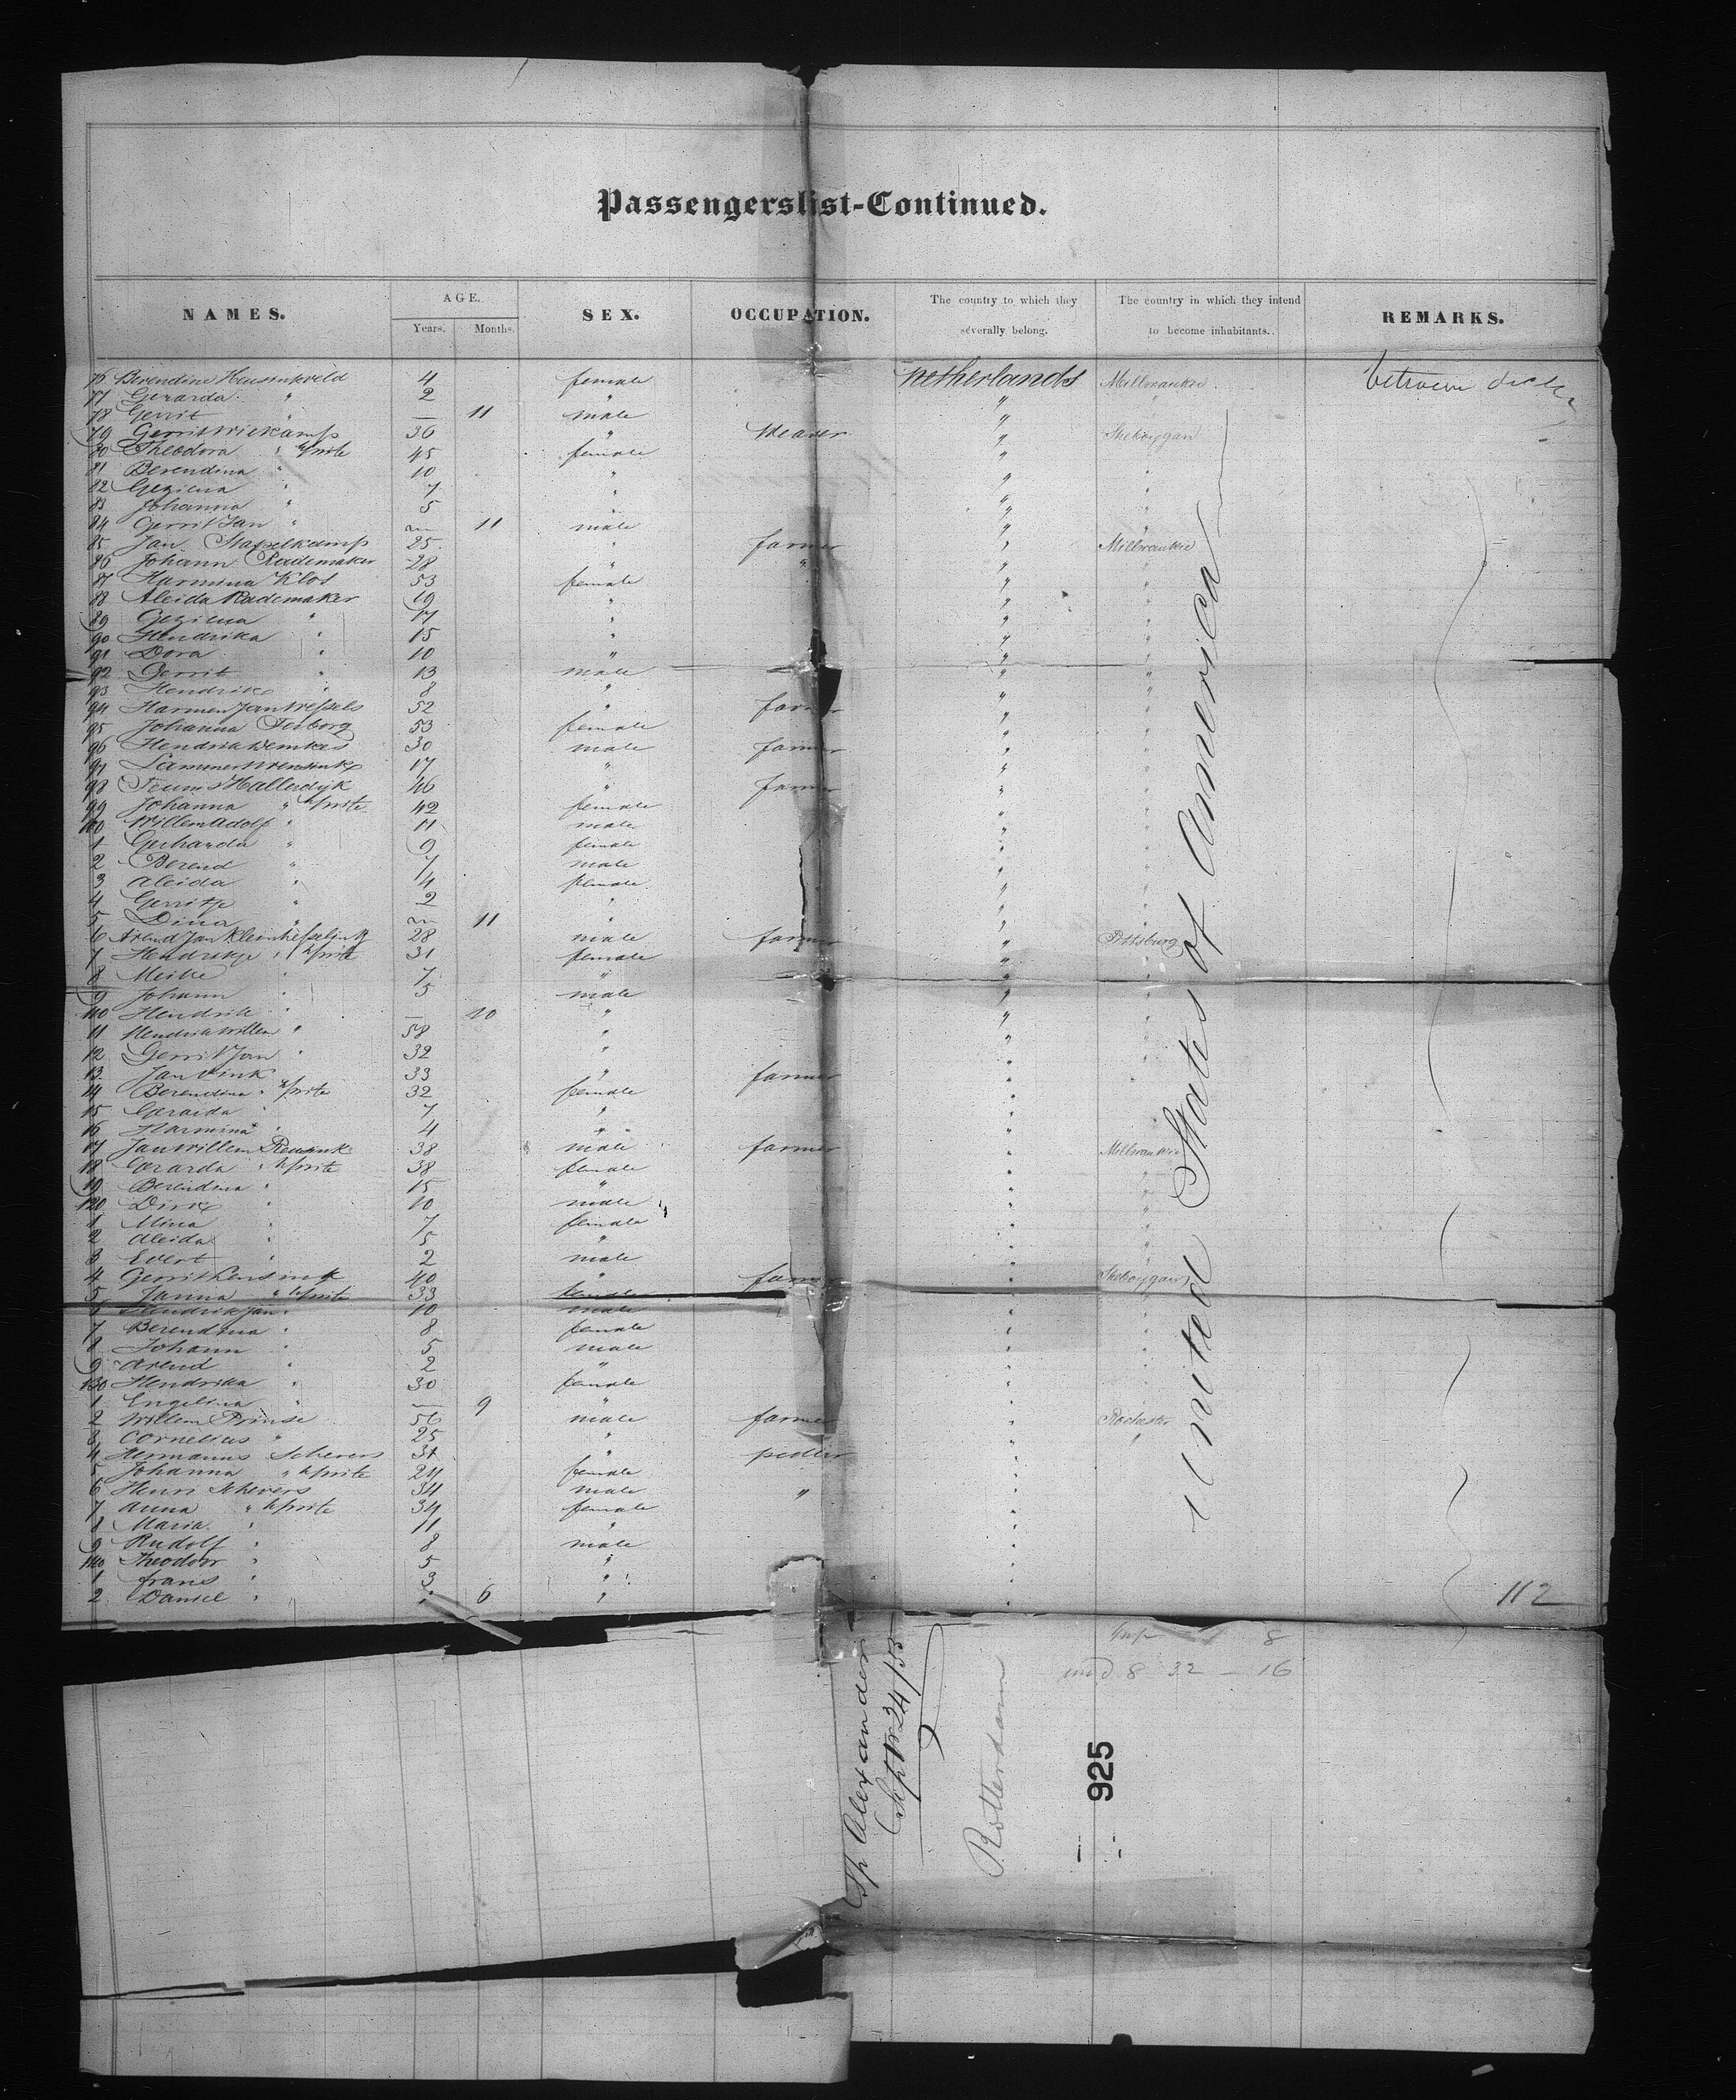 Passengerslist-Continued.
NAMES. AGE. SEX. OCCUPATION. The country to which they severally belong. The country in which they intend to become inhabitants. REMARKS.
Years. Months.
76 Berendina Heusinkveld 4 female Netherlands Millwaukie between decks
77 Gerarda " 2 " "
78 Gerrit " — 11 male "
79 Gerrit Wiekamp 36 " Weaver " Sheboygan
80 Theodora " wife 45 female "
81 Berendina " 10 " " "
82 Gezina " 7 " " "
83 Johanna " 5 " " "
84 Gerrit Jan " 11 male " "
85 Jan Stapelkamp 25 " farmer " Millwaukie
86 Johann Rademaker 28 " " " "
87 Harmina Klos 53 female " "
88 Aleida Rademaker 19 " " "
89 Gezina " 17 " " "
90 Hendrika " 15 " " "
91 Dora " 10 " " "
92 Gerrit " 13 male " "
93 Hendrik " 8 " " "
94 Harmen Jan Wessels 52 " farmer " "
95 Johanna 53 female " "
96 Hendrik 30 male farmer " "
97 17 " " "
98 Teunis Hallerdyk 46 " farmer " "
99 Johanna " wife 42 female " "
100 Willem Adolf " 11 male " "
1 Gerharda " 9 female " "
2 Berend " 7 male " "
3 Aleida " 4 female " "
4 Gerritje " 2 " " "
5 Dina " 11 " " "
6 Arend Jan Kleinhesselink 28 male farmer " Pittsburg
7 Hendrikje " wife 31 female " "
8 Meike " 7 " " "
9 Johann " 5 male " "
110 Hendrik " — 10 " " "
11 Hendrik Willem " 58 " " "
12 Gerrit Jan " 32 " " "
13 Jan Vink 33 " farmer " "
14 Berendina " wife 32 female " "
15 Geraida " 7 " " "
16 Harmina " 4 " " "
17 Jan Willem Reusink 38 male farmer " Millwaukie
18 Gerarda " wife 38 female " "
19 Berendina " 15 " " "
120 Dirk " 10 male " "
1 Mina " 7 female " "
2 Aleida " 5 " " "
3 Evert " 2 male " "
4 Gerrit Lensink 40 " farmer " Sheboygan
5 Janna " wife 33 female " "
6 Hendrik Jan " 10 male " "
7 Berendina " 8 female " "
8 Johann " 5 male " "
9 Arend " 2 " " "
130 Hendrika " 30 female " "
1 Engelina " — 9 " " "
2 Willem Prinse 56 male farmer " Rochester
3 Cornelius " 25 " " "
4 Hermanus Schevers 31 " pedler "
5 Johanna " wife 24 female "
6 Henri Schevers 34 male " "
7 Anna " wife 34 female "
8 Maria " 11 " "
9 Rudolf " 8 male "
140 Theodoor " 5 " "
1 frans " 3 " "
2 Daniel " " 6 " "
United States of America
112
8
8 32 — 16
Sp Alexander
Sept 24/55
Rotterdam
925